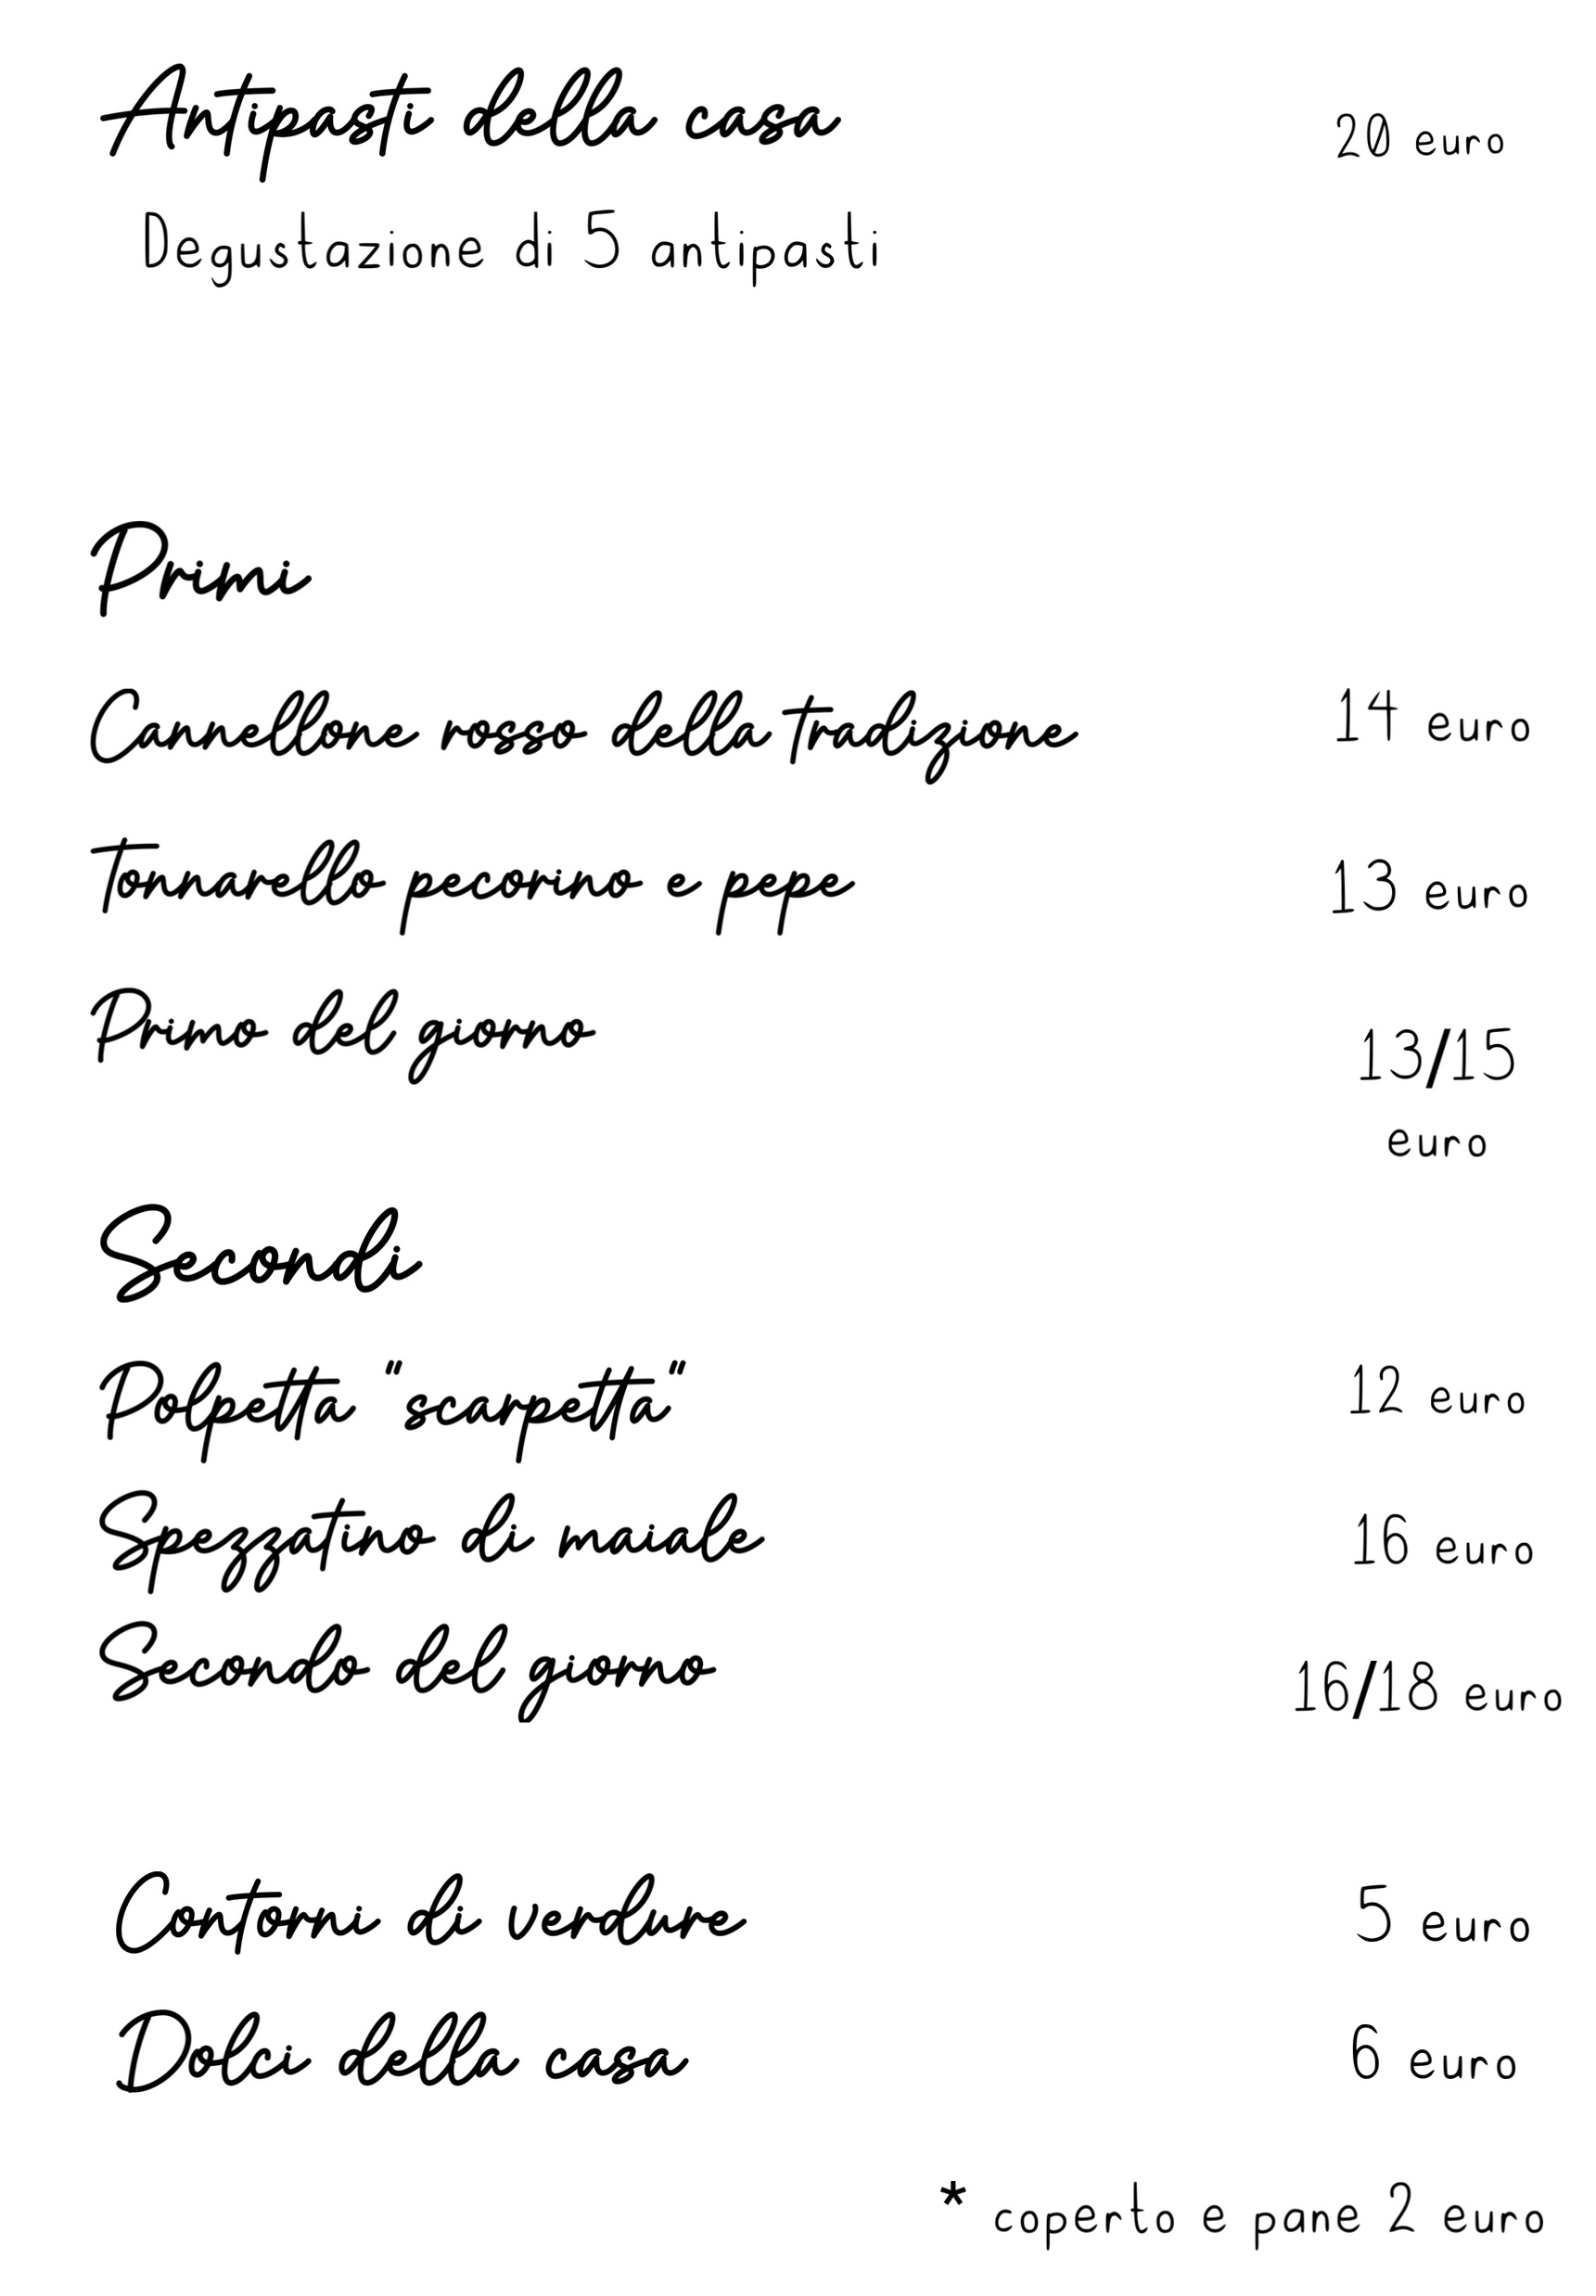 Antipasti della casa 20 euro
Degustazione di 5 antipasti
Primi
Cannellone rosso della tradizione 14 euro
Tonnarello pecorino e pepe 13 euro
Primo del giorno 13/15
euro
Secondi
Polpetta "scarpetta" 12 euro
Spezzatino di maiale 16 euro
Secondo del giorno 16/18 euro
Contorni di verdure 5 euro
Dolci della casa 6 euro
* coperto e pane 2 euro